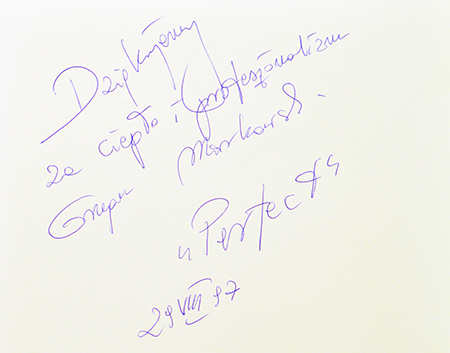 Dziękujemy
za ciepło i profesjonalizm
Grupa Markowski
"Perfect"
29 VIII 97